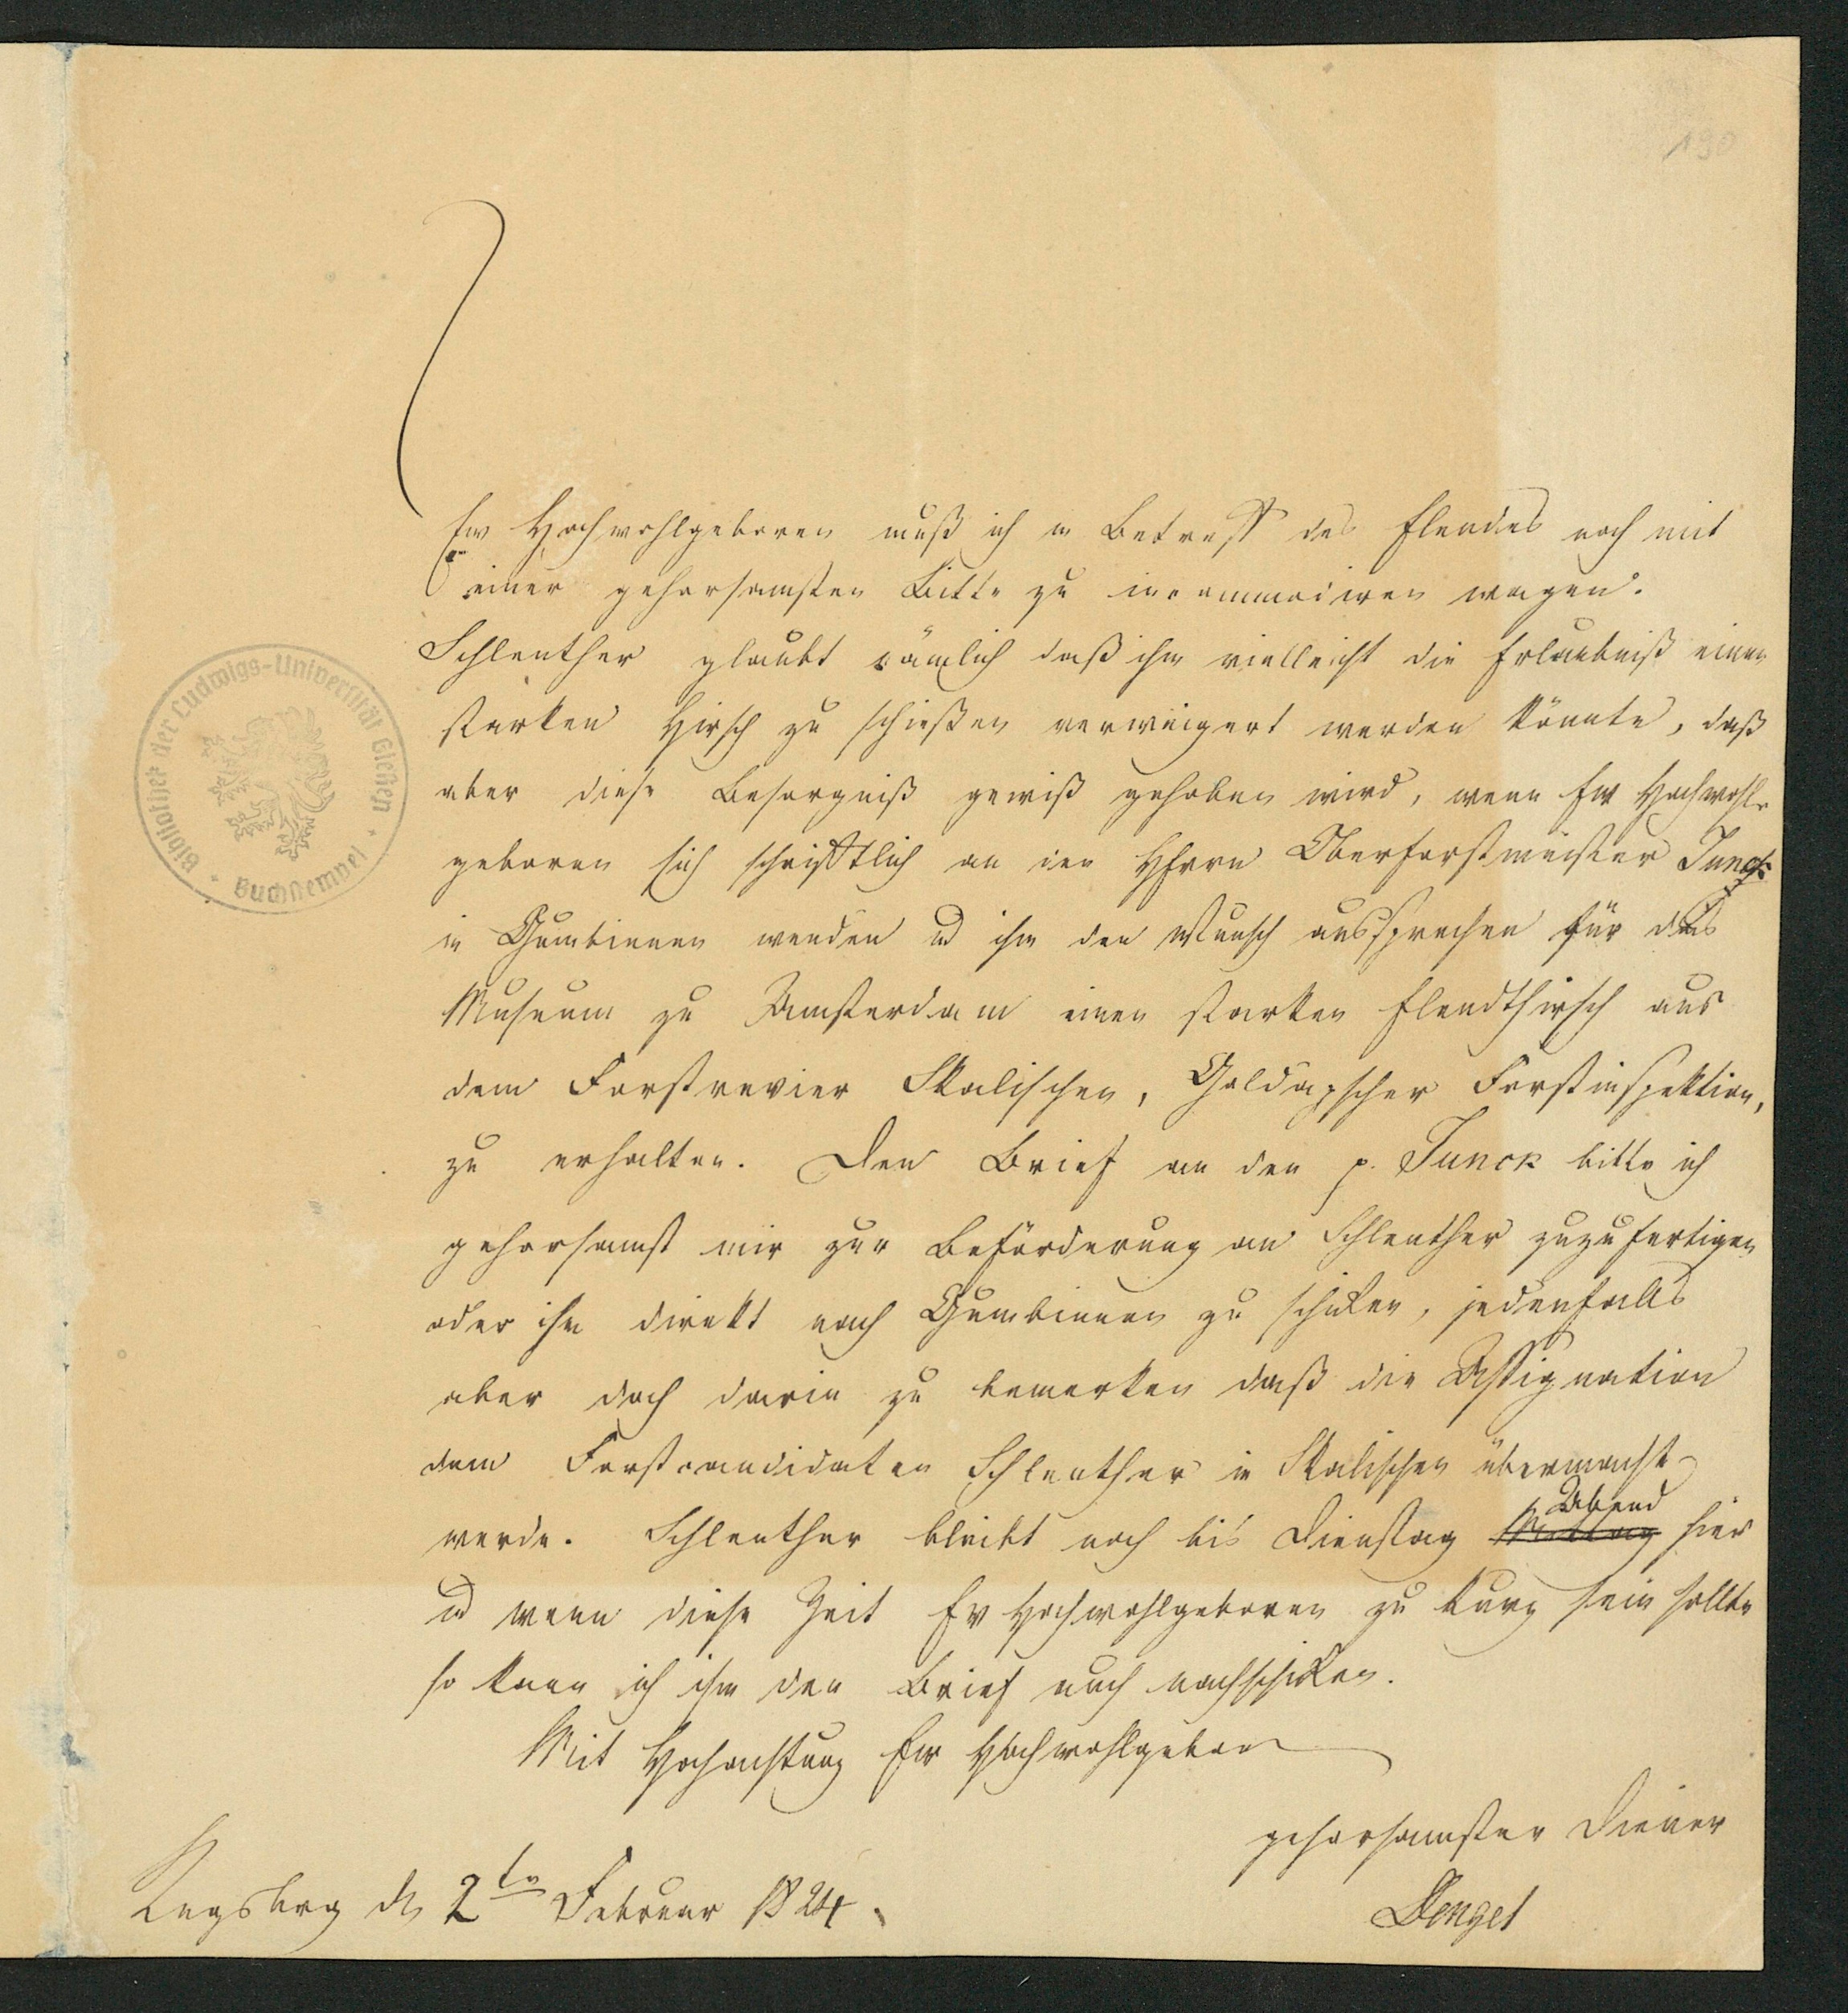 190
Ew Hochwohlgeboren muß ich in Betreff des Elendes noch mit
einer gehorsamsten Bitte zu incommodiren wagen.
Schlenther glaubt nämlich daß ihm vielleicht die Erlaubniß einen
starken Hirsch zu schießen verweigert werden könnte, daß
aber diese Besorgniß gewiß gehoben wird, wenn Ew Hochwohl-
geboren sich schriftlich an den Herrn Oberforstmeister Junck
in Gumbinnen wenden u ihm den Wunsch aussprechen für das
Museum zu Amsterdam einen starken Elendthirsch aus
dem Forstrevier Skalischen, Goldapscher Forstinspektion,
zu erhalten. Den Brief an den p. Junck bitte ich
gehorsamst mir zur Beförderung an Schlenther zuzufertigen
oder ihn direkt nach Gumbinnen zu schicken, jedenfalls
aber doch darin zu bemerken daß die Assignation
dem Forstcandidaten Schlenther in Skalischen übermacht
werde. Schlenther bleibt noch bis Dienstag Mittag Abend hier
u wenn diese Zeit Ew Hochwohlgeboren zu kurz sein sollte
so kann ich ihm den Brief auch nachschicken.
Mit Hochachtung Ew Hochwohlgeboren
gehorsamster Diener
Kngsbrg d 2ten Februar 1824.
Bibliothek der Ludwigs-Universität Gießen
Buchstempel